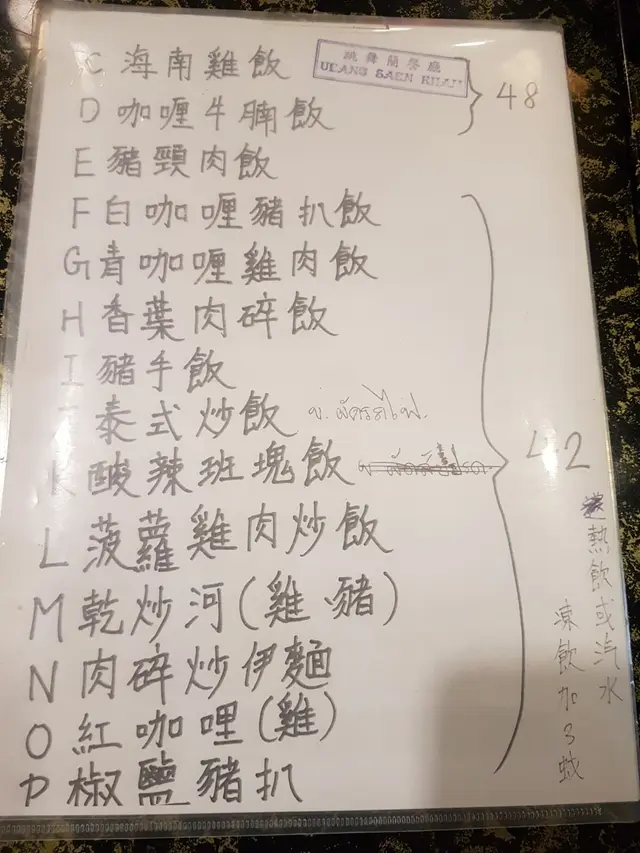 C 海南雞飯
跳舞蘭餐廳
48
D 咖喱牛腩飯
E 豬頸肉飯
F 白咖喱豬扒飯
G 青咖喱雞肉飯
H 香葉肉碎飯
I 豬手飯
泰式炒飯
K 酸辣班塊飯
42
L 菠蘿雞肉炒飯
M 乾炒河(雞、豬)
N 肉碎炒伊麵
O 紅咖哩(雞)
P 椒鹽豬扒
送熱飲或汽水
凍飲加3蚊